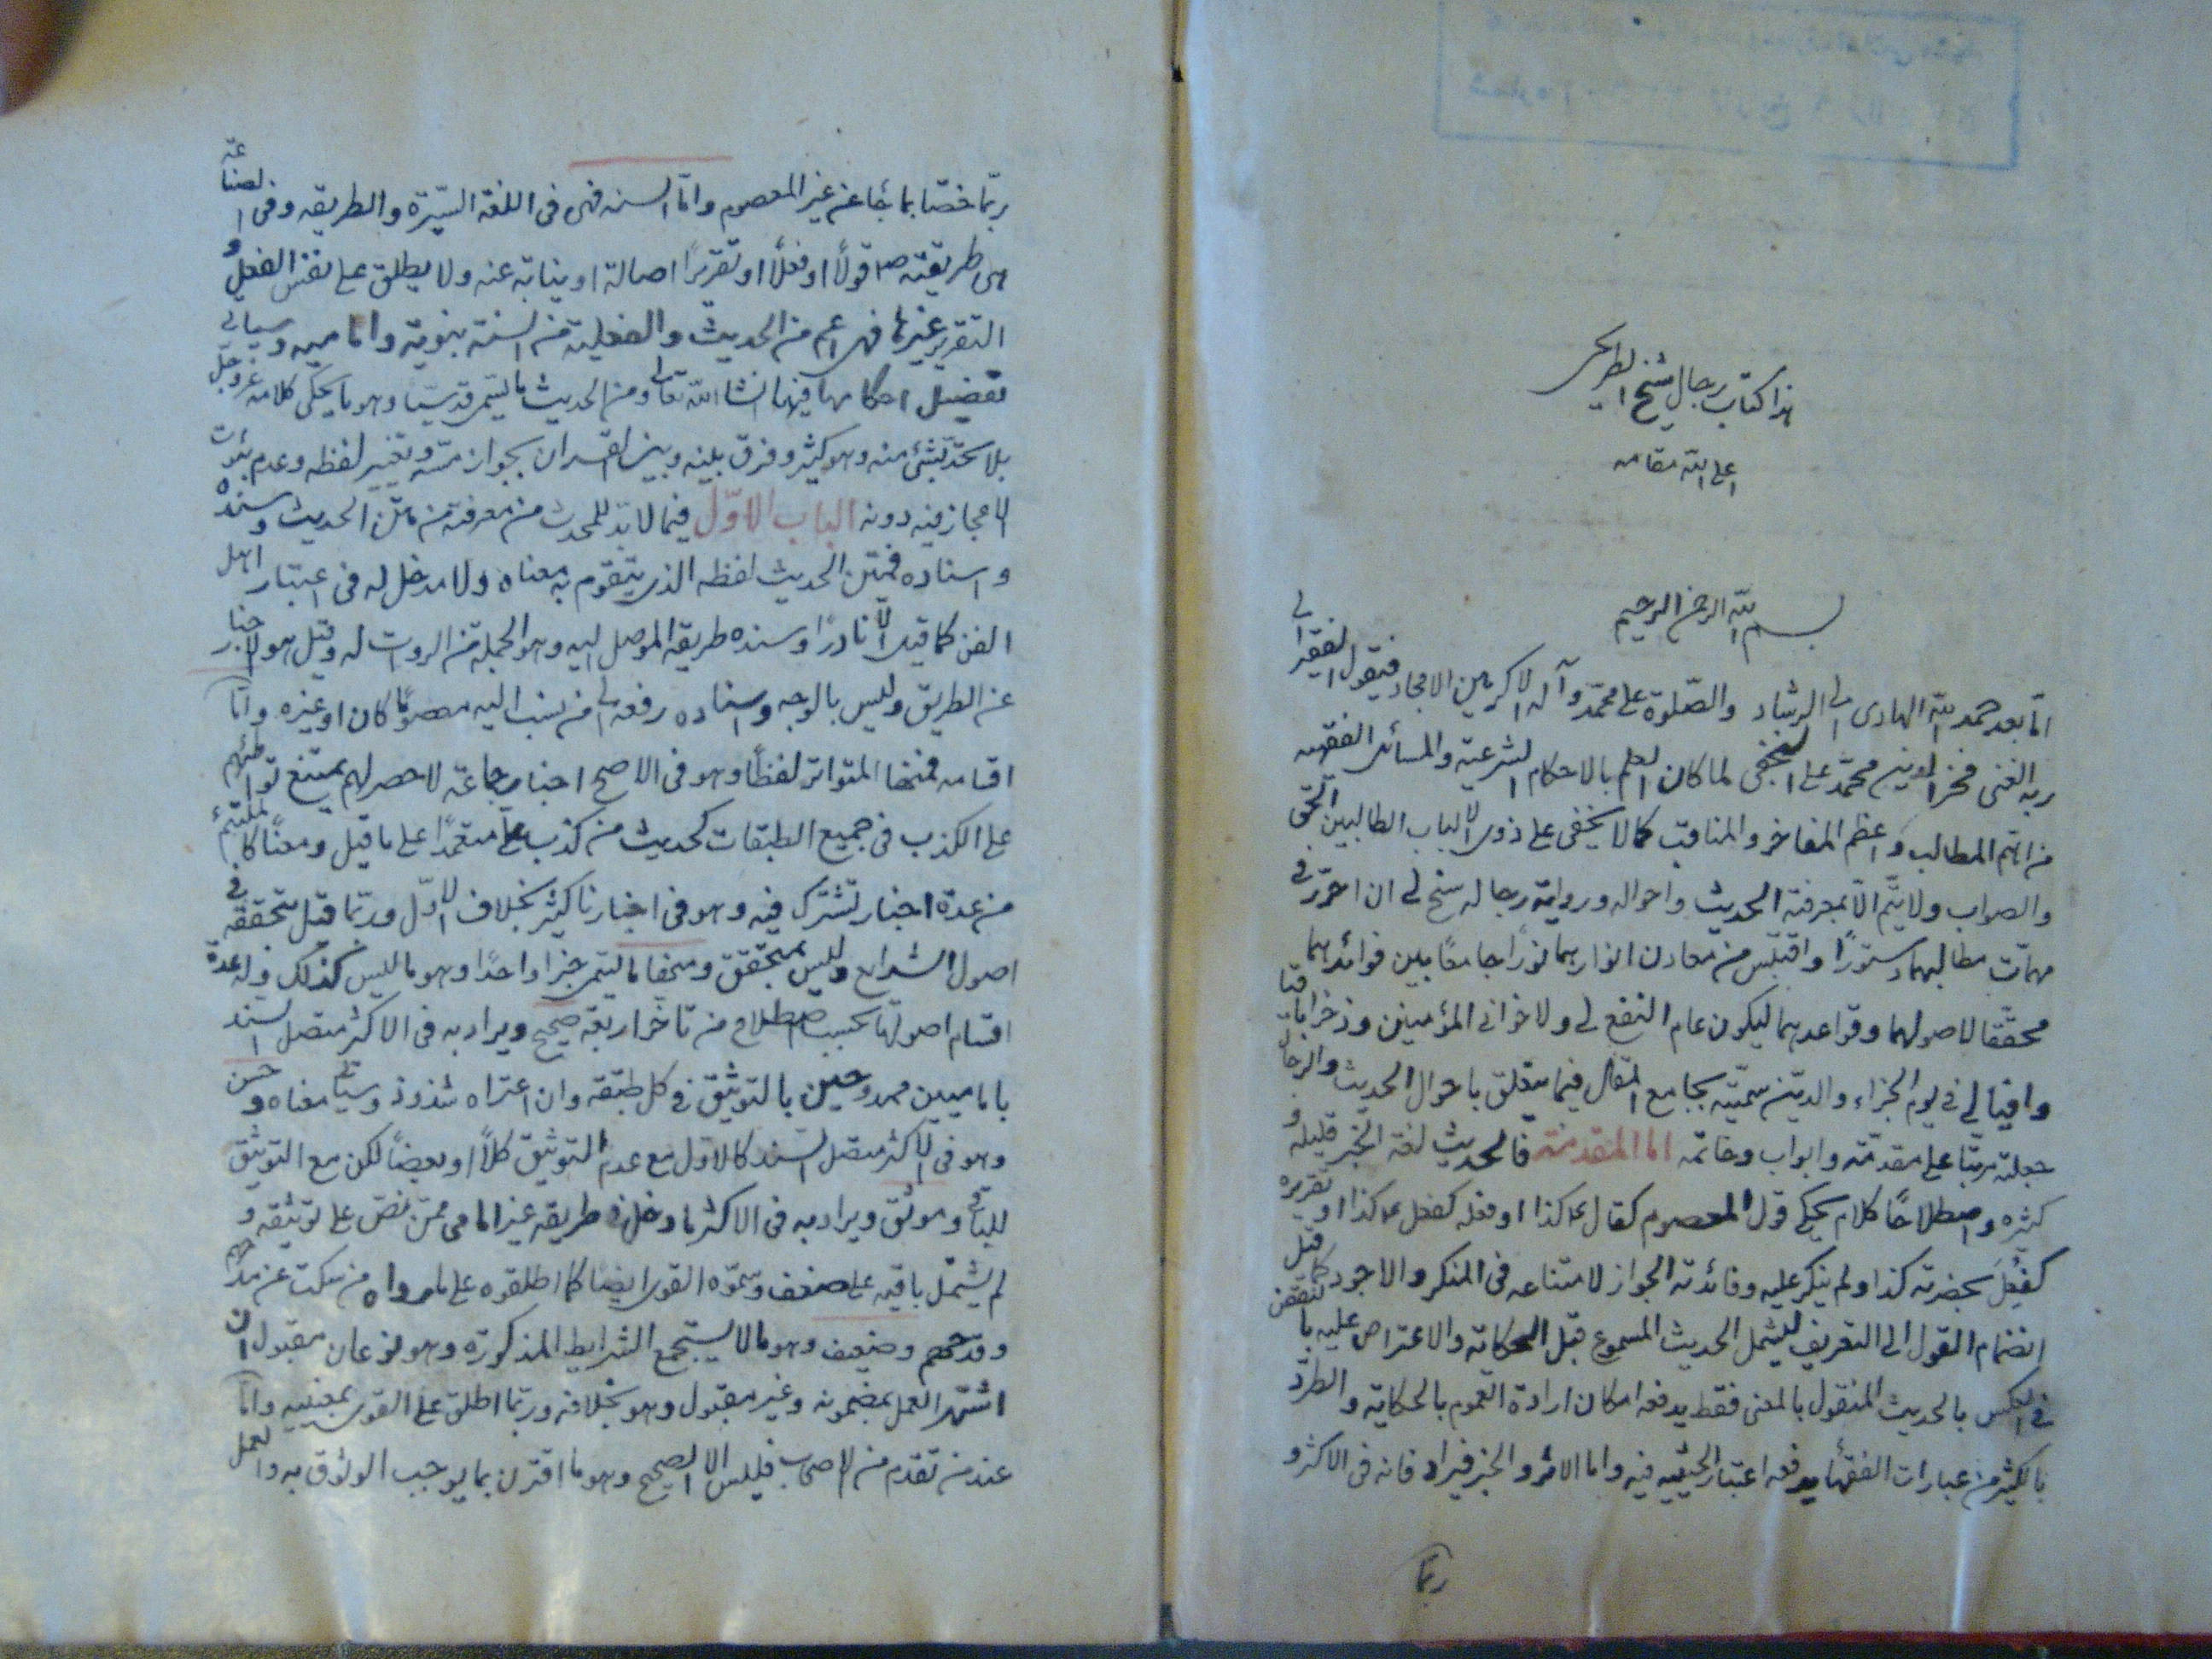 هذا كتاب رجال شيخ الطريحى
اعلى الله مقامه
بسم الله الرحمن الرحيم
اما بعد حمد الله الهادى الى الرشاد والصلوة على محمد وآله الاكرمين الامجاد فيقول الفقير الى
ربه الغنى فخر الدين محمد على النجفى لما كان العلم بالاحكام الشرعية والمسائل الفقهيه
من اهم المطالب واعظم المفاخر والمناقب كما لا يخفى على ذوى الالباب الطالبين الحق
والصواب ولا يتم الا بمعرفة الحديث واحواله ورواية رجاله سنح لى ان احرر فى
مهمات مطالبهما دستورًا واقتبس من معادن انوارهما نورًا جامعًا بين فوائدهما
محققا لاصولهما وقواعدهما ليكون عام النفع لى ولاخوانى المؤمنين وذخرا باقيا
وافيا لى فى يوم الجزاء والدين سميته بجامع المقال فيما يتعلق باحوال الحديث والرجال و
جعلته مرتبا على مقدمة وابواب وخاتمه اما المقدمة فالحديث لغة الخبر قليله و
كثيره واصطلاحًا كلام يحكى قول المعصوم كقال ع كذا او فعله كفعل ع كذا او تقريره
كفُعِلَ بحضرته كذا ولم ينكر عليه وفائدته الجواز لامتناعه فى المنكر والاجود كما قيل
انضمام القول الى التعريف ليشمل الحديث المسموع قبل الحكاته والاعتراض عليه بالنقض
فى العكس بالحديث المنقول بالمعنى فقط يدفعه امكان ارادة العموم بالحكاية والطرد
بالكثير من عبارات الفقها يدفعه اعتبار الحيثيه فيه واما الاثر والخبر فيراد فانه فى الاكثر و
ربما
ربما خصّا بما جا عن غير المعصوم واما السنه فهى فى اللغة السيرة والطريقه وفى الصناعة
هى طريقته ص قولاً او فعلاً او تقريرًا اصالة او نيابة عنه ولا يطلق على نفس الفعل و
التقرير غيرها فهى اعم من الحديث والفعلية من السنة نبوية واماميه وسياتى
تفضيل احكامها فيها انشا الله تعالى ومن الحديث ما يسمى قدسيا وهو ما يحكى كلامه عز وجل
بلا تحد بشئ منه وهو كثير وفرق بينه وبين القران بجواز مسه وتغيير لفظه وعدم ثبوت
الاعجاز فيه دونه الباب الاوّل فيما لا بد للمحدث من معرفته من متن الحديث وسنده
واسناده فمتن الحديث لفظه الذى يتقوم به معناه ولا مدخل له فى اعتبار اهل
الفن كما قيل الا نادرًا وسنده طريقه الموصل اليه وهو الجملة من الروات له وقيل هو الاخبار
عن الطريق وليس بالوجه واسناده رفعه الى من ينسب اليه معصومًا كان او غيره واما
اقسامه فمنها المتواتر لفظًا وهو فى الاصح اخبار جماعة لا حصر لهم يمتنع تواطئهم
على الكذب فى جميع الطبقات كحديث من كذب علىّ متعمدًا على ما قيل ومعنًا كالملتئم
من عدة اخبار تشترك فيه وهو فى اخبارنا كثير بخلاف الاوّل وربما قيل بتحققه فى
اصول الشرايع وليس بمتحقق ومنها ما يسمى خبرا واحدًا وهو ما ليس كذلك وله عدة
اقسام اصولها بحسب اصطلاح من تاخر اربعة صحيح ويراد به فى الاكثر متصل السند
بامامييين ممدوحين بالتوثيق فى كل طبقه وان اعتراه شذوذ وسياتى معناه وحسن
وهو فى الاكثر متصل السند كالاول مع عدم التوثيق كلاً او بعضاً لكن مع التوثيق
للباقى وموثق ويراد به فى الاكثر ما دخل فى طريقه غير امامى ممن نص على توثيقه و
لم يشتمل باقيه على ضعف وسموه القوى ايضاً كما اطلقوه على ما رواه من سكت عن مدحهم
وقدحهم وضعيف وهو ما لا يستجمع الشرايط المذكورة وهو نوعان مقبول ان
اشتهر العمل بمضمونه وغير مقبول وهو بخلافه وربما اطلق على القوى بمعنييه واما
عند من تقدم من الاصحاب فليس الا الصحيح وهو ما اقترن بما يوجب الوثوق به والعمل